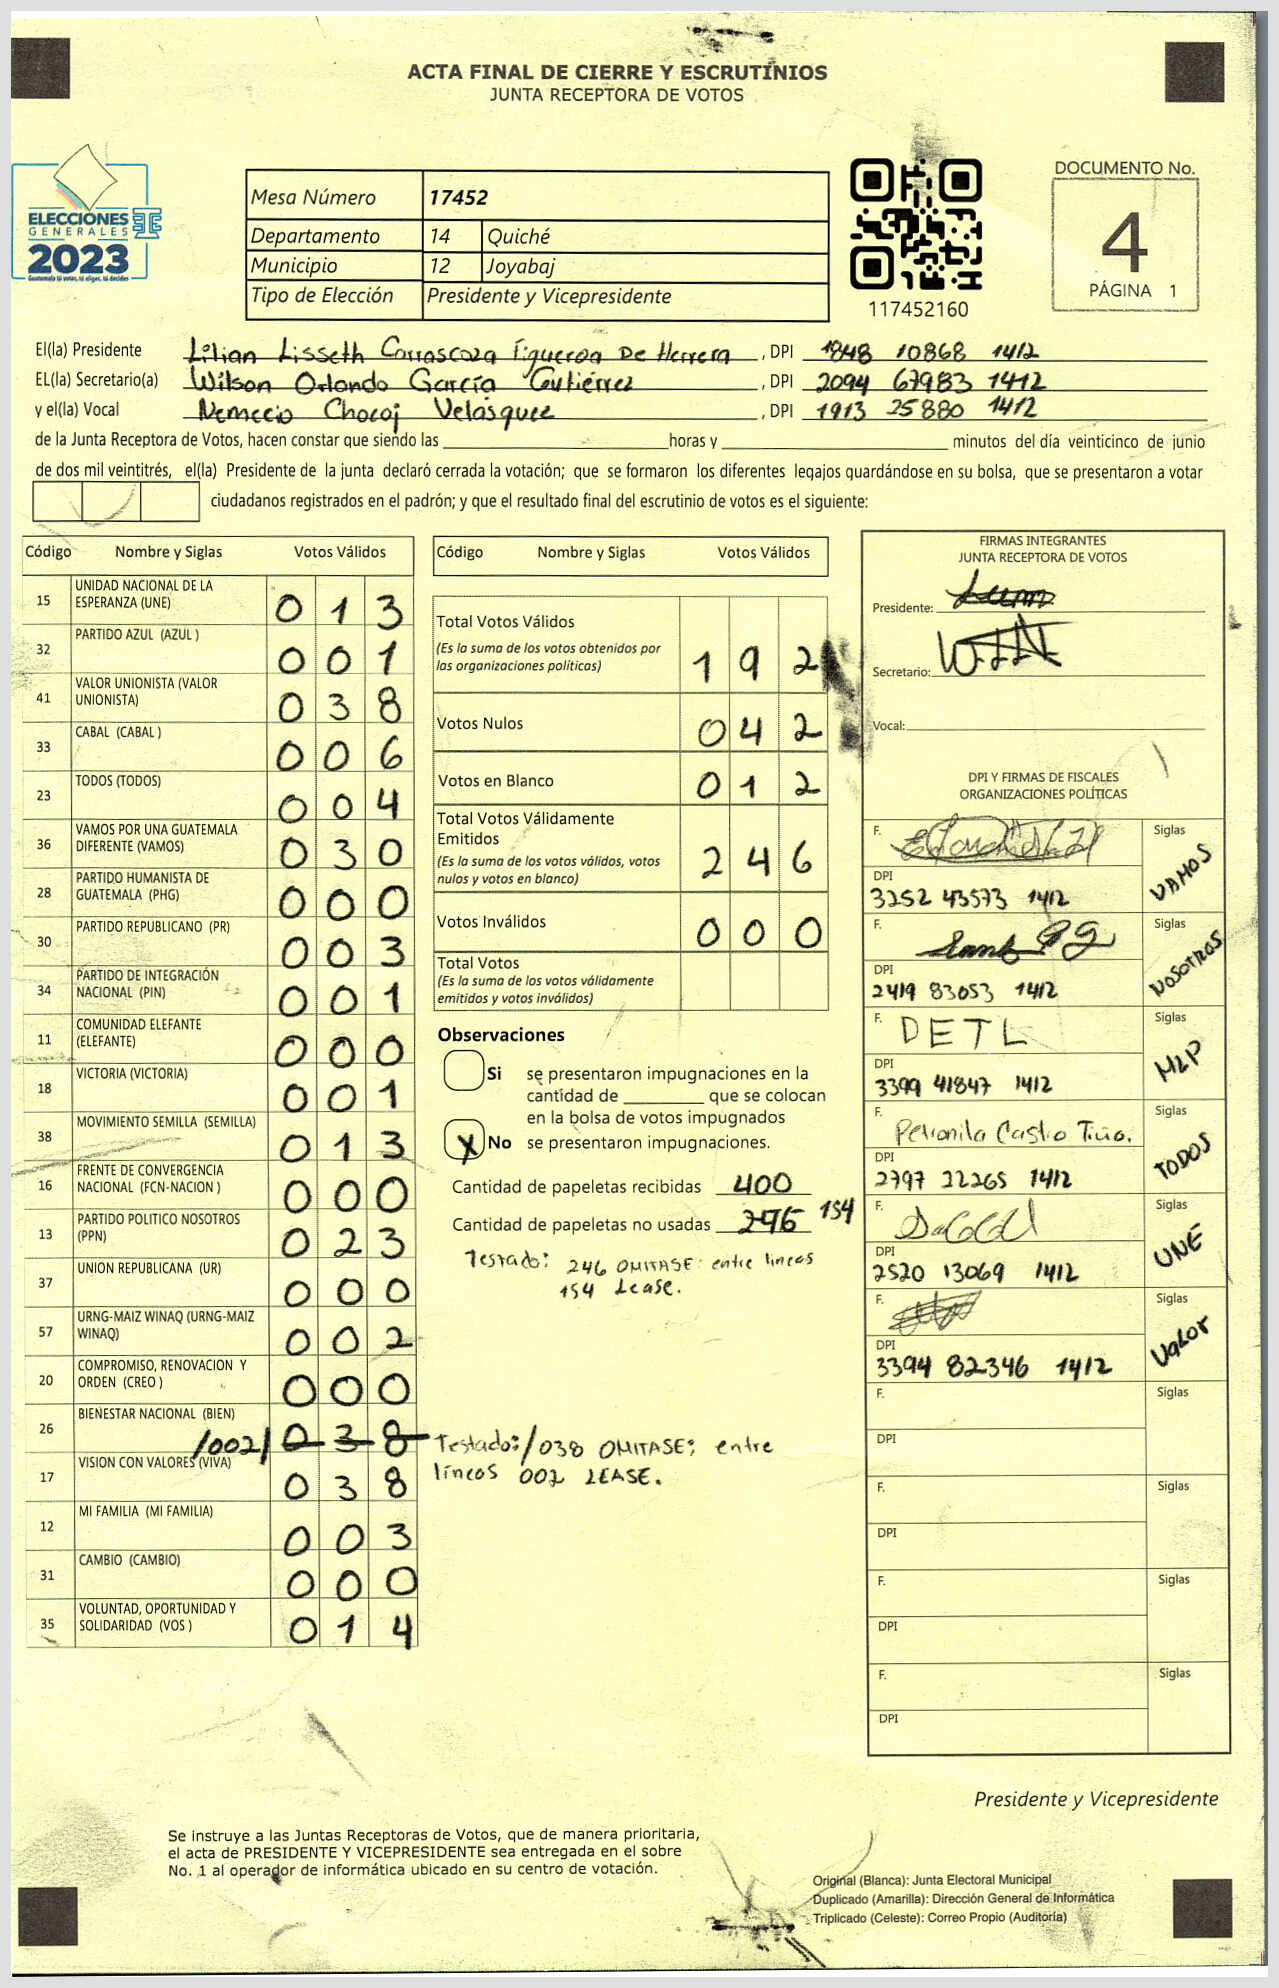 ACTA FINAL DE CIERRE Y ESCRUTINIOS
JUNTA RECEPTORA DE VOTOS
ELECCIONES
GENERALES
2023
Guatemala tú votas, tú eliges, tú decides
Mesa Número 17452
Departamento 14 Quiché
Municipio 12 Joyabaj
Tipo de Elección Presidente y Vicepresidente
117452160
DOCUMENTO No.
4
PÁGINA 1
El(la) Presidente Lilian Lisseth Carrascoza Figueroa De Herrera, DPI 1848 10868 1412
EL(la) Secretario(a) Wilson Orlando García Gutiérrez, DPI 2094 67983 1412
y el(la) Vocal Nemecio Chocoj Velásquez, DPI 1913 25880 1412
de la Junta Receptora de Votos, hacen constar que siendo las horas y minutos del día veinticinco de junio
de dos mil veintitrés, el(la) Presidente de la junta declaró cerrada la votación; que se formaron los diferentes legajos guardándose en su bolsa, que se presentaron a votar
ciudadanos registrados en el padrón; y que el resultado final del escrutinio de votos es el siguiente:
Código Nombre y Siglas Votos Válidos
15 UNIDAD NACIONAL DE LA ESPERANZA (UNE) 013
32 PARTIDO AZUL (AZUL ) 001
41 VALOR UNIONISTA (VALOR UNIONISTA) 038
33 CABAL (CABAL ) 006
23 TODOS (TODOS) 004
36 VAMOS POR UNA GUATEMALA DIFERENTE (VAMOS) 030
28 PARTIDO HUMANISTA DE GUATEMALA (PHG) 000
30 PARTIDO REPUBLICANO (PR) 003
34 PARTIDO DE INTEGRACIÓN NACIONAL (PIN) 001
11 COMUNIDAD ELEFANTE (ELEFANTE) 000
18 VICTORIA (VICTORIA) 001
38 MOVIMIENTO SEMILLA (SEMILLA) 013
16 FRENTE DE CONVERGENCIA NACIONAL (FCN-NACION ) 000
13 PARTIDO POLITICO NOSOTROS (PPN) 023
37 UNION REPUBLICANA (UR) 000
57 URNG-MAIZ WINAQ (URNG-MAIZ WINAQ) 002
20 COMPROMISO, RENOVACION Y ORDEN (CREO ) 000
26 BIENESTAR NACIONAL (BIEN) /002/ 038
17 VISION CON VALORES (VIVA) 038
12 MI FAMILIA (MI FAMILIA) 003
31 CAMBIO (CAMBIO) 000
35 VOLUNTAD, OPORTUNIDAD Y SOLIDARIDAD (VOS ) 014
Código Nombre y Siglas Votos Válidos
Total Votos Válidos 192
(Es la suma de los votos obtenidos por
las organizaciones políticas)
Votos Nulos 042
Votos en Blanco 012
Total Votos Válidamente
Emitidos 246
(Es la suma de los votos válidos, votos
nulos y votos en blanco)
Votos Inválidos 000
Total Votos
(Es la suma de los votos válidamente
emitidos y votos inválidos)
Observaciones
Si se presentaron impugnaciones en la
cantidad de que se colocan
en la bolsa de votos impugnados
X No se presentaron impugnaciones.
Cantidad de papeletas recibidas 400
Cantidad de papeletas no usadas 246 154
Testado: 246 OMITASE: entre lineas
154 Lease.
Testado:/038 OMITASE; entre
líneas 002 LEASE.
FIRMAS INTEGRANTES
JUNTA RECEPTORA DE VOTOS
Presidente:
Secretario:
Vocal:
DPI Y FIRMAS DE FISCALES
ORGANIZACIONES POLÍTICAS
F. Siglas VAMOS
DPI
3252 43573 1412
F. Siglas NOSOTROS
DPI
2419 83053 1412
F. DETL Siglas MLP
DPI
3399 41847 1412
F. Petronila Castro Tiño. Siglas TODOS
DPI
2797 22265 1412
F. Siglas UNE
DPI
2520 13069 1412
F. Siglas VALOR
DPI
3394 82346 1412
F. Siglas
DPI
F. Siglas
DPI
F. Siglas
DPI
F. Siglas
DPI
Presidente y Vicepresidente
Se instruye a las Juntas Receptoras de Votos, que de manera prioritaria,
el acta de PRESIDENTE Y VICEPRESIDENTE sea entregada en el sobre
No. 1 al operador de informática ubicado en su centro de votación.
Original (Blanca): Junta Electoral Municipal
Duplicado (Amarilla): Dirección General de Informática
Triplicado (Celeste): Correo Propio (Auditoría)